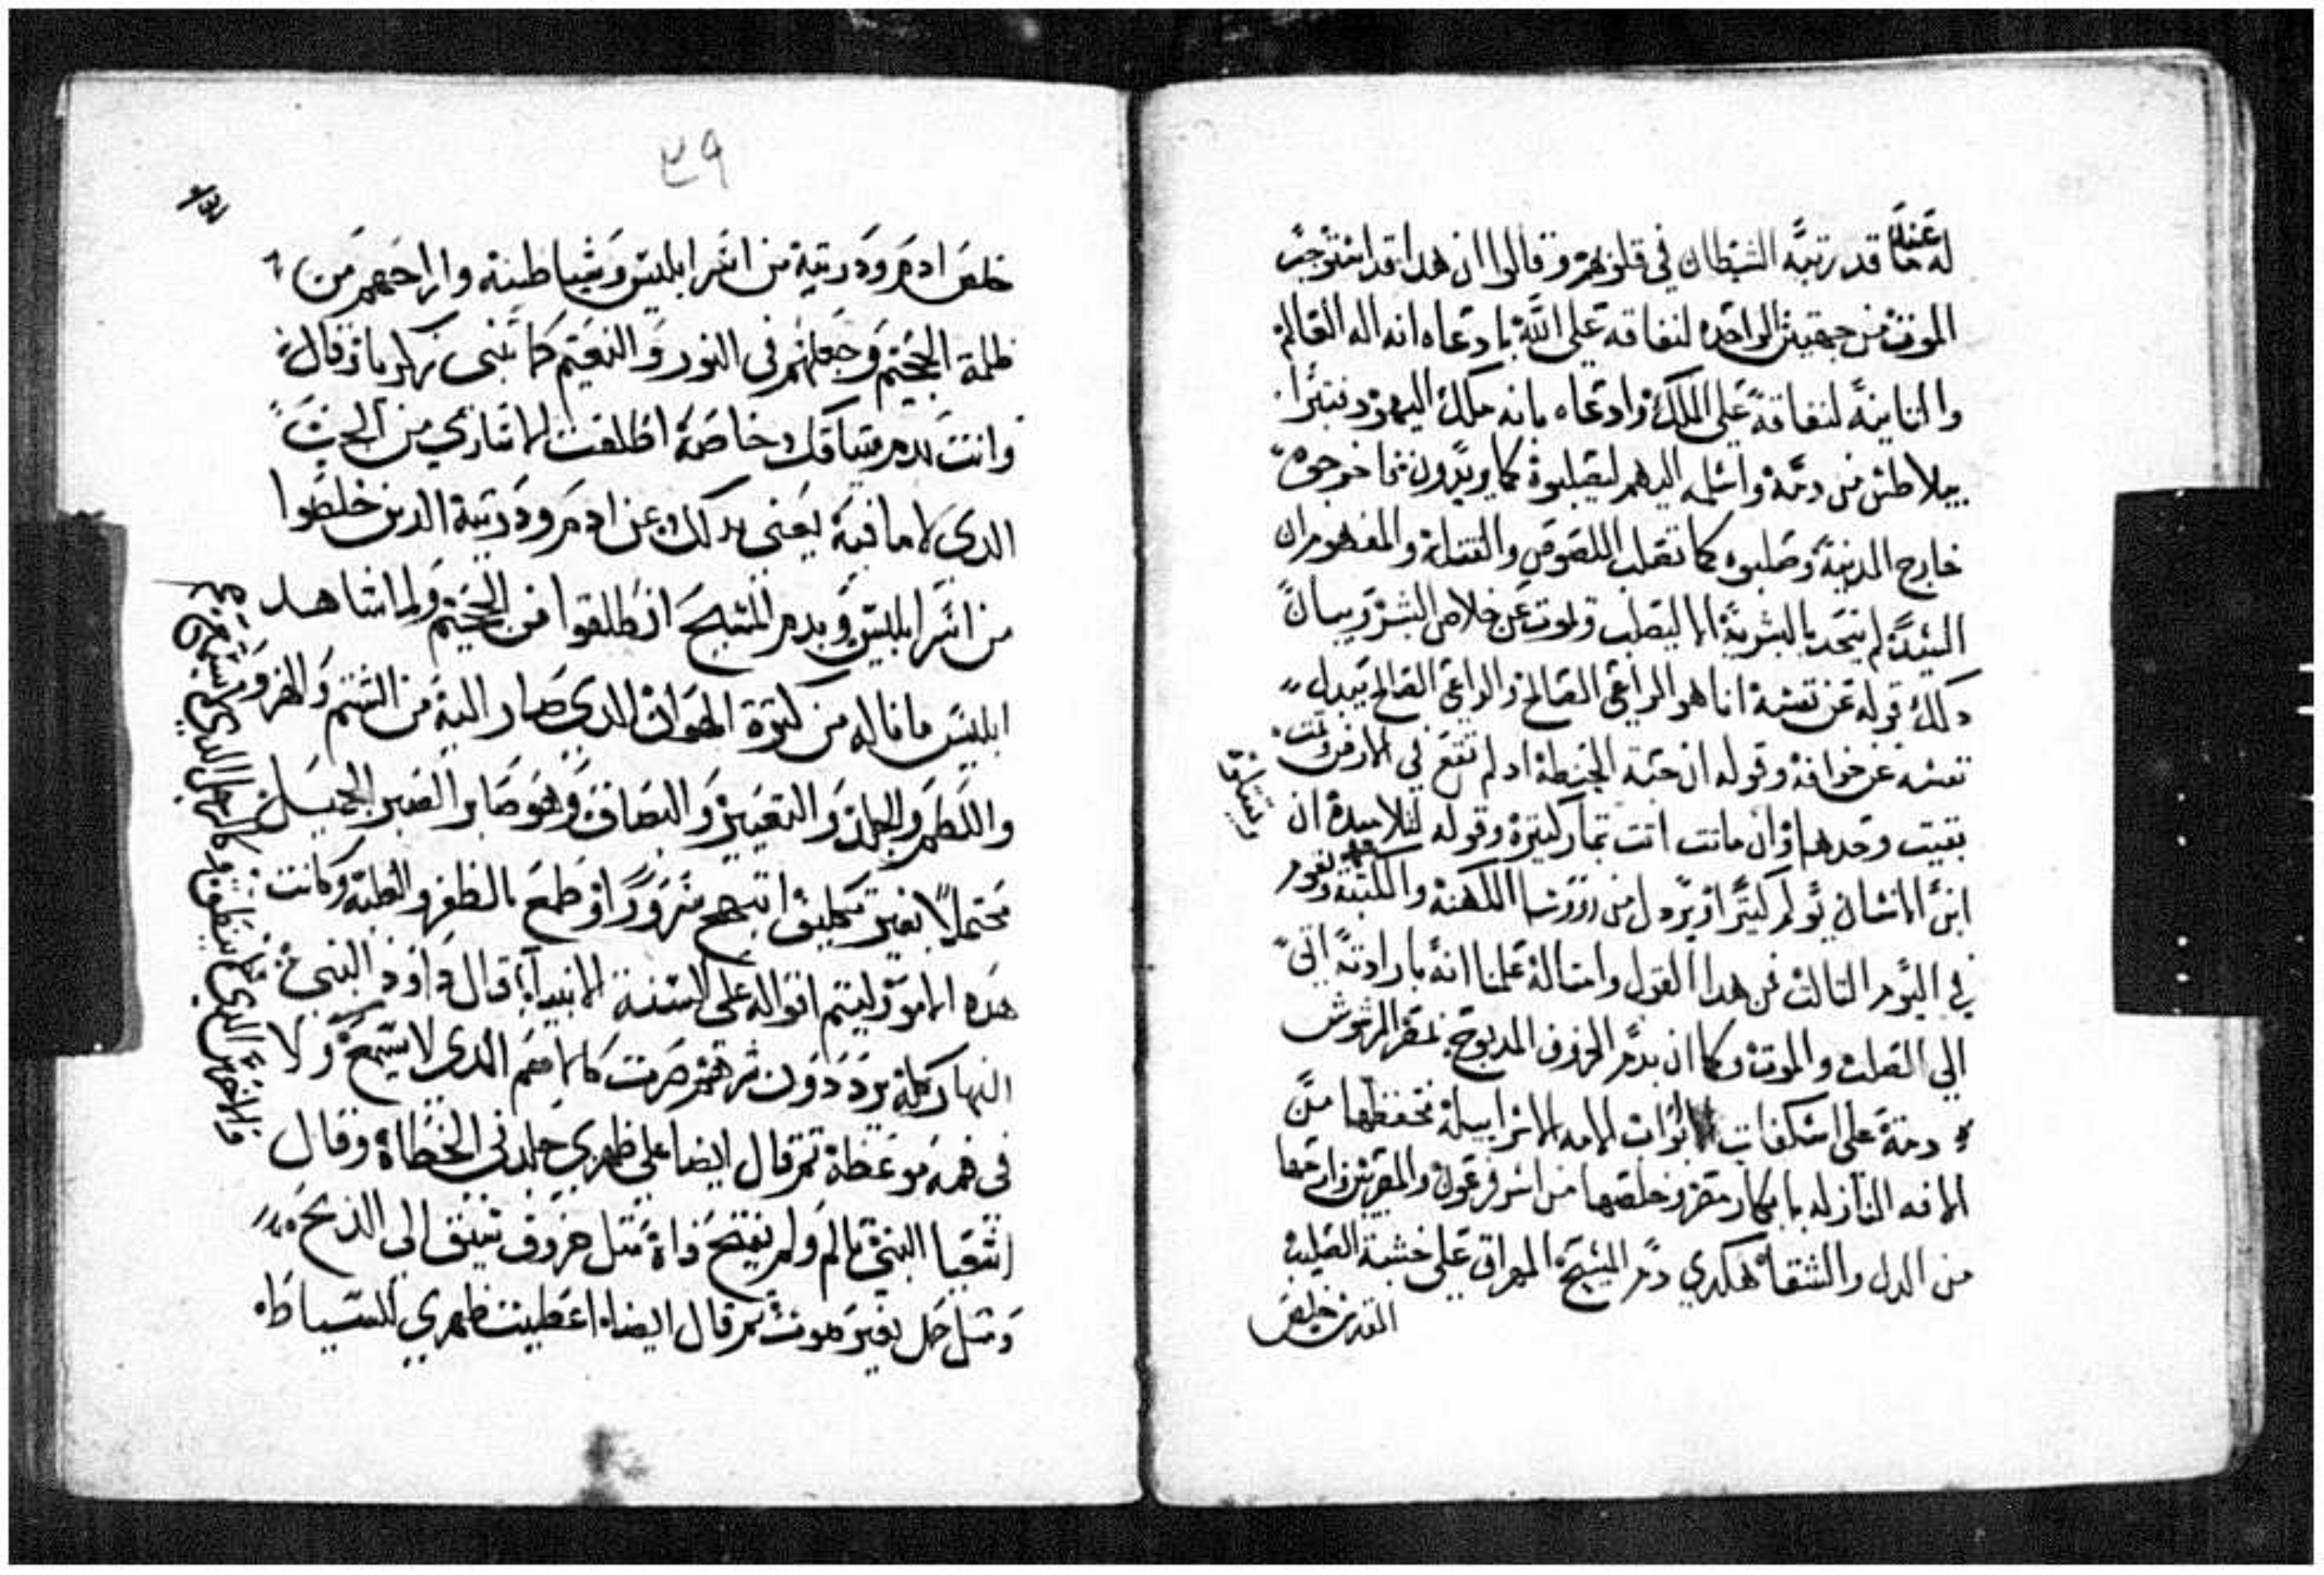 له عناه قد رتبه الشيطان في قلوبهم وقالوا ان هدا قد استوجب
الموت من جهتين الواحده لنفاقه علي الله بادعاه انه اله العالم
والتانيه لنفاقه علي الملك وادعاه بانه ملك اليهود فتبرا
بيلاطس من دمه واسلمه اليهم ليصلبوه كما يريدون
خارج المدينة وصلبوه كما تصلب اللصوص والقتله والمفهوم ان
السيد لم يتحد بالبشرية الا ليصلب ويموت عن خلاص البشر وبيان
دلك قوله عن نفسه انا هو الراعي الصالح والراعي الصالح يبدل
نفسه عن خرافه وقوله ان حبة الحنطة اد لم تقع في الارض وتمت
بقيت وحدها وان ماتت اتت بتمار كتيرة وقوله لتلاميده ان
ابن الانسان يولم كتيرا ويردل من روسا الكهنة والكتبة ويقوم
ويقتلوه
في اليوم التالت فمن هدا القول وامتاله علمنا انه بارادته اتي
الي الصلب والموت وكما ان بدم الخروف المدبوح بمصر المرشوش
دمه علي اسكفات ابواب الامه الاسراييليه تحفظها من
الافه النازله بابكار مصر وخلصها من اسر فرعون والمصريين وارحها
من الدل والشقا هكدي دم المسيح المهراق علي خشبة الصليب
المقدس خلص
٣٩
خلص ادم ودريته من اسر ابليس وشياطينه واراحهم من
ظلمة الجحيم وجعلهم في النور والنعيم كما تنبي زكريا وقال
وانت بدم ميتاقك خاصة اطلقت الاساري من الجب
الدي لا ما فيه يعني بدلك عن ادم ودريته الدين خلصوا
من اسر ابليس وبدم المسيح انطلقوا من الجحيم ولما شاهد
ابليس ما ناله من كترة الهوان الدي صار اليه من الشتم والهزو
واللطم والجلد والتعيير والبصاق وهو صابر الصبر الجميل
محتملا بغير ابتهج سرورا وطمع بالظفر والغلبة وكانت
هده الامور ليتم اقواله علي السنة الانبيا قال داوود النبي
النهار كله يرددون شرهم صرت كالاصم الدي لا يسمع ولا
في فمه موعظة تم قال ايضا علي ظهري جلدني الخطاه وقال
اشعيا النبي تالم ولم يفتح فاه متل خروف سيق الي الدبح
ومتل حمل بغير صوت تم قال ايضا اعطيت ظهري للسياط